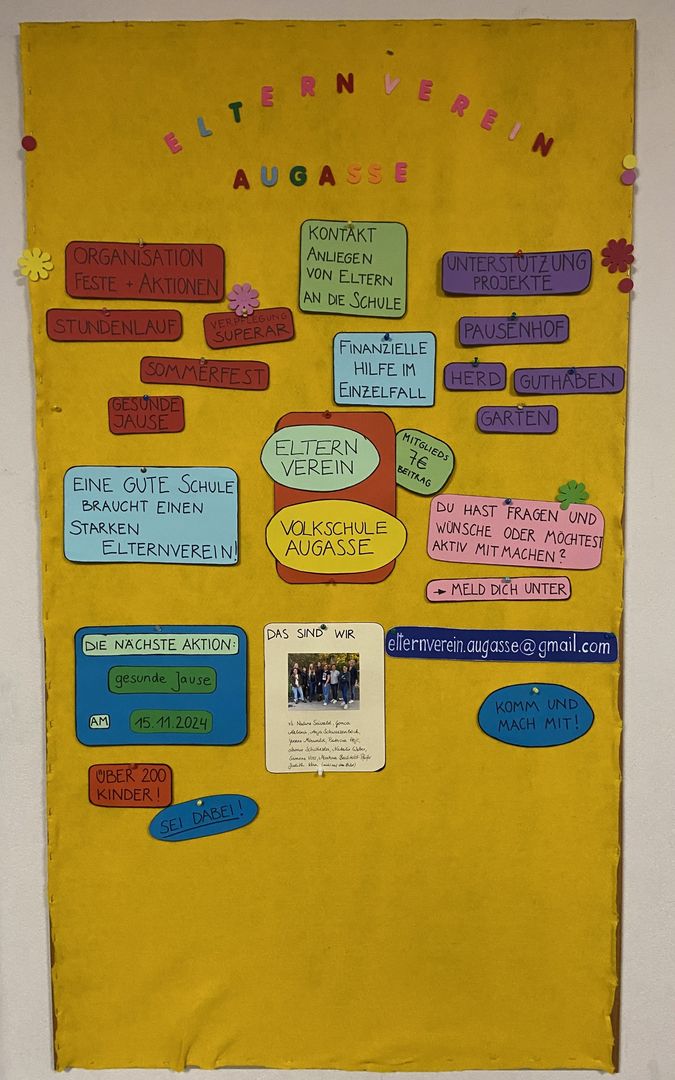 ELTERNVEREIN
AUGASSE
ORGANISATION
FESTE + AKTIONEN
STUNDENLAUF
VERPFLEGUNG
SUPERAR
SOMMERFEST
GESUNDE
JAUSE
KONTAKT
ANLIEGEN
VON ELTERN
AN DIE SCHULE
FINANZIELLE
HILFE IM
EINZELFALL
UNTERSTÜTZUNG
PROJEKTE
PAUSENHOF
HERD
GUTHABEN
GARTEN
ELTERN
VEREIN
MITGLIEDS
7€
BEITRAG
VOLKSCHULE
AUGASSE
EINE GUTE SCHULE
BRAUCHT EINEN
STARKEN
ELTERNVEREIN!
DU HAST FRAGEN UND
WÜNSCHE ODER MÖCHTEST
AKTIV MITMACHEN?
→ MELD DICH UNTER
elternverein.augasse@gmail.com
KOMM UND
MACH MIT!
DIE NÄCHSTE AKTION:
gesunde Jause
AM
15.11.2024
ÜBER 200
KINDER!
SEI DABEI!
DAS SIND WIR